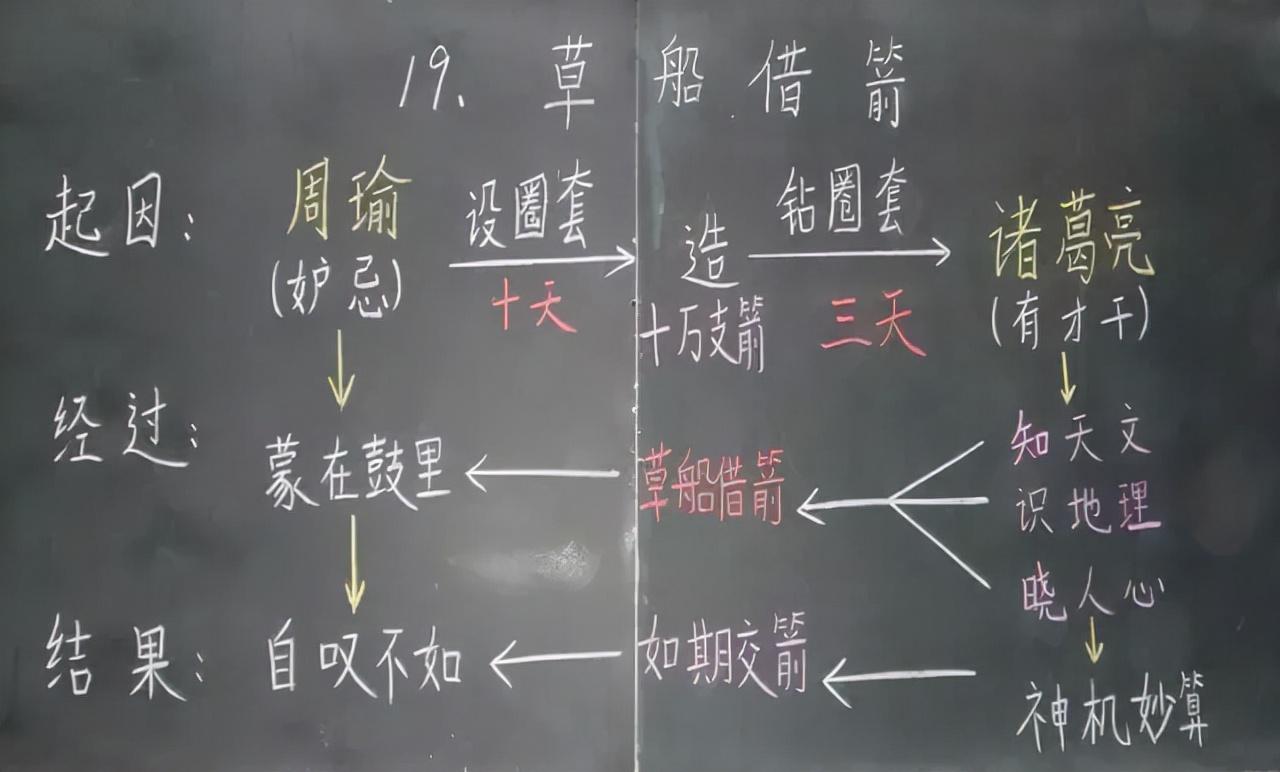 19、草船借箭
起因：周瑜 设圈套 造 钻圈套 诸葛亮
(妒忌) 十天 十万支箭 三天 (有才干)
经过：蒙在鼓里 草船借箭 知天文
识地理
晓人心
结果：自叹不如 如期交箭 神机妙算